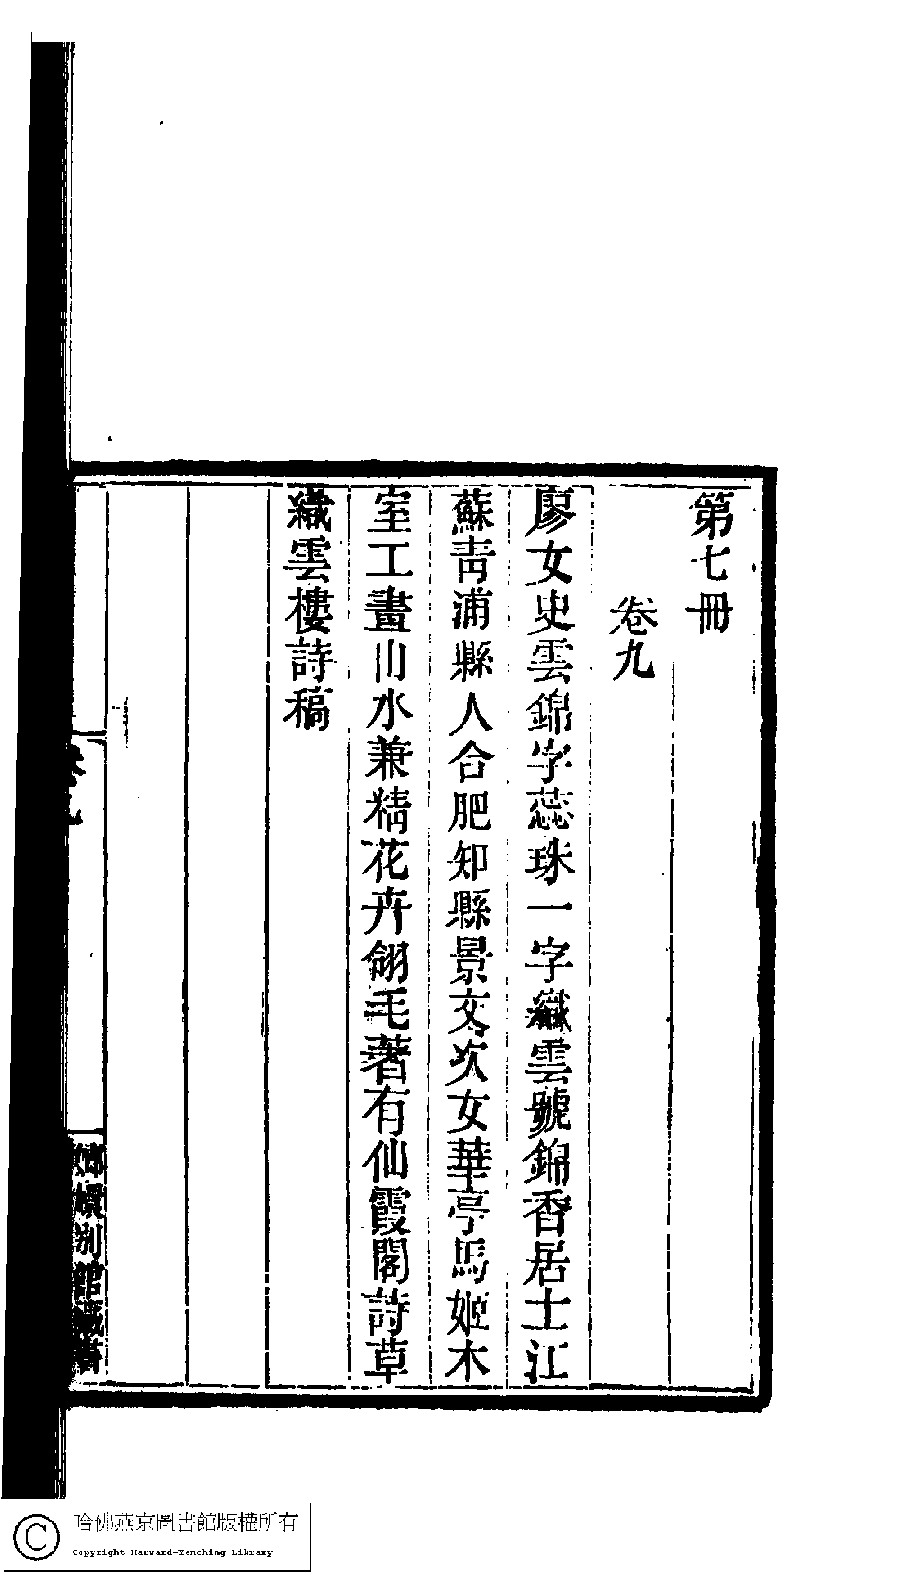 第七冊
卷九
廖女史雲錦字蕊珠一字織雲號錦香居士江
蘇青浦縣人合肥知縣景文次女華亭馬姬木
室工畫山水兼精花卉翎毛著有仙霞閣詩草
織雲樓詩稿
卷九
嫏嬛別館藏書
哈佛燕京圖書館版權所有
Copyright Harvard-Yenching Library